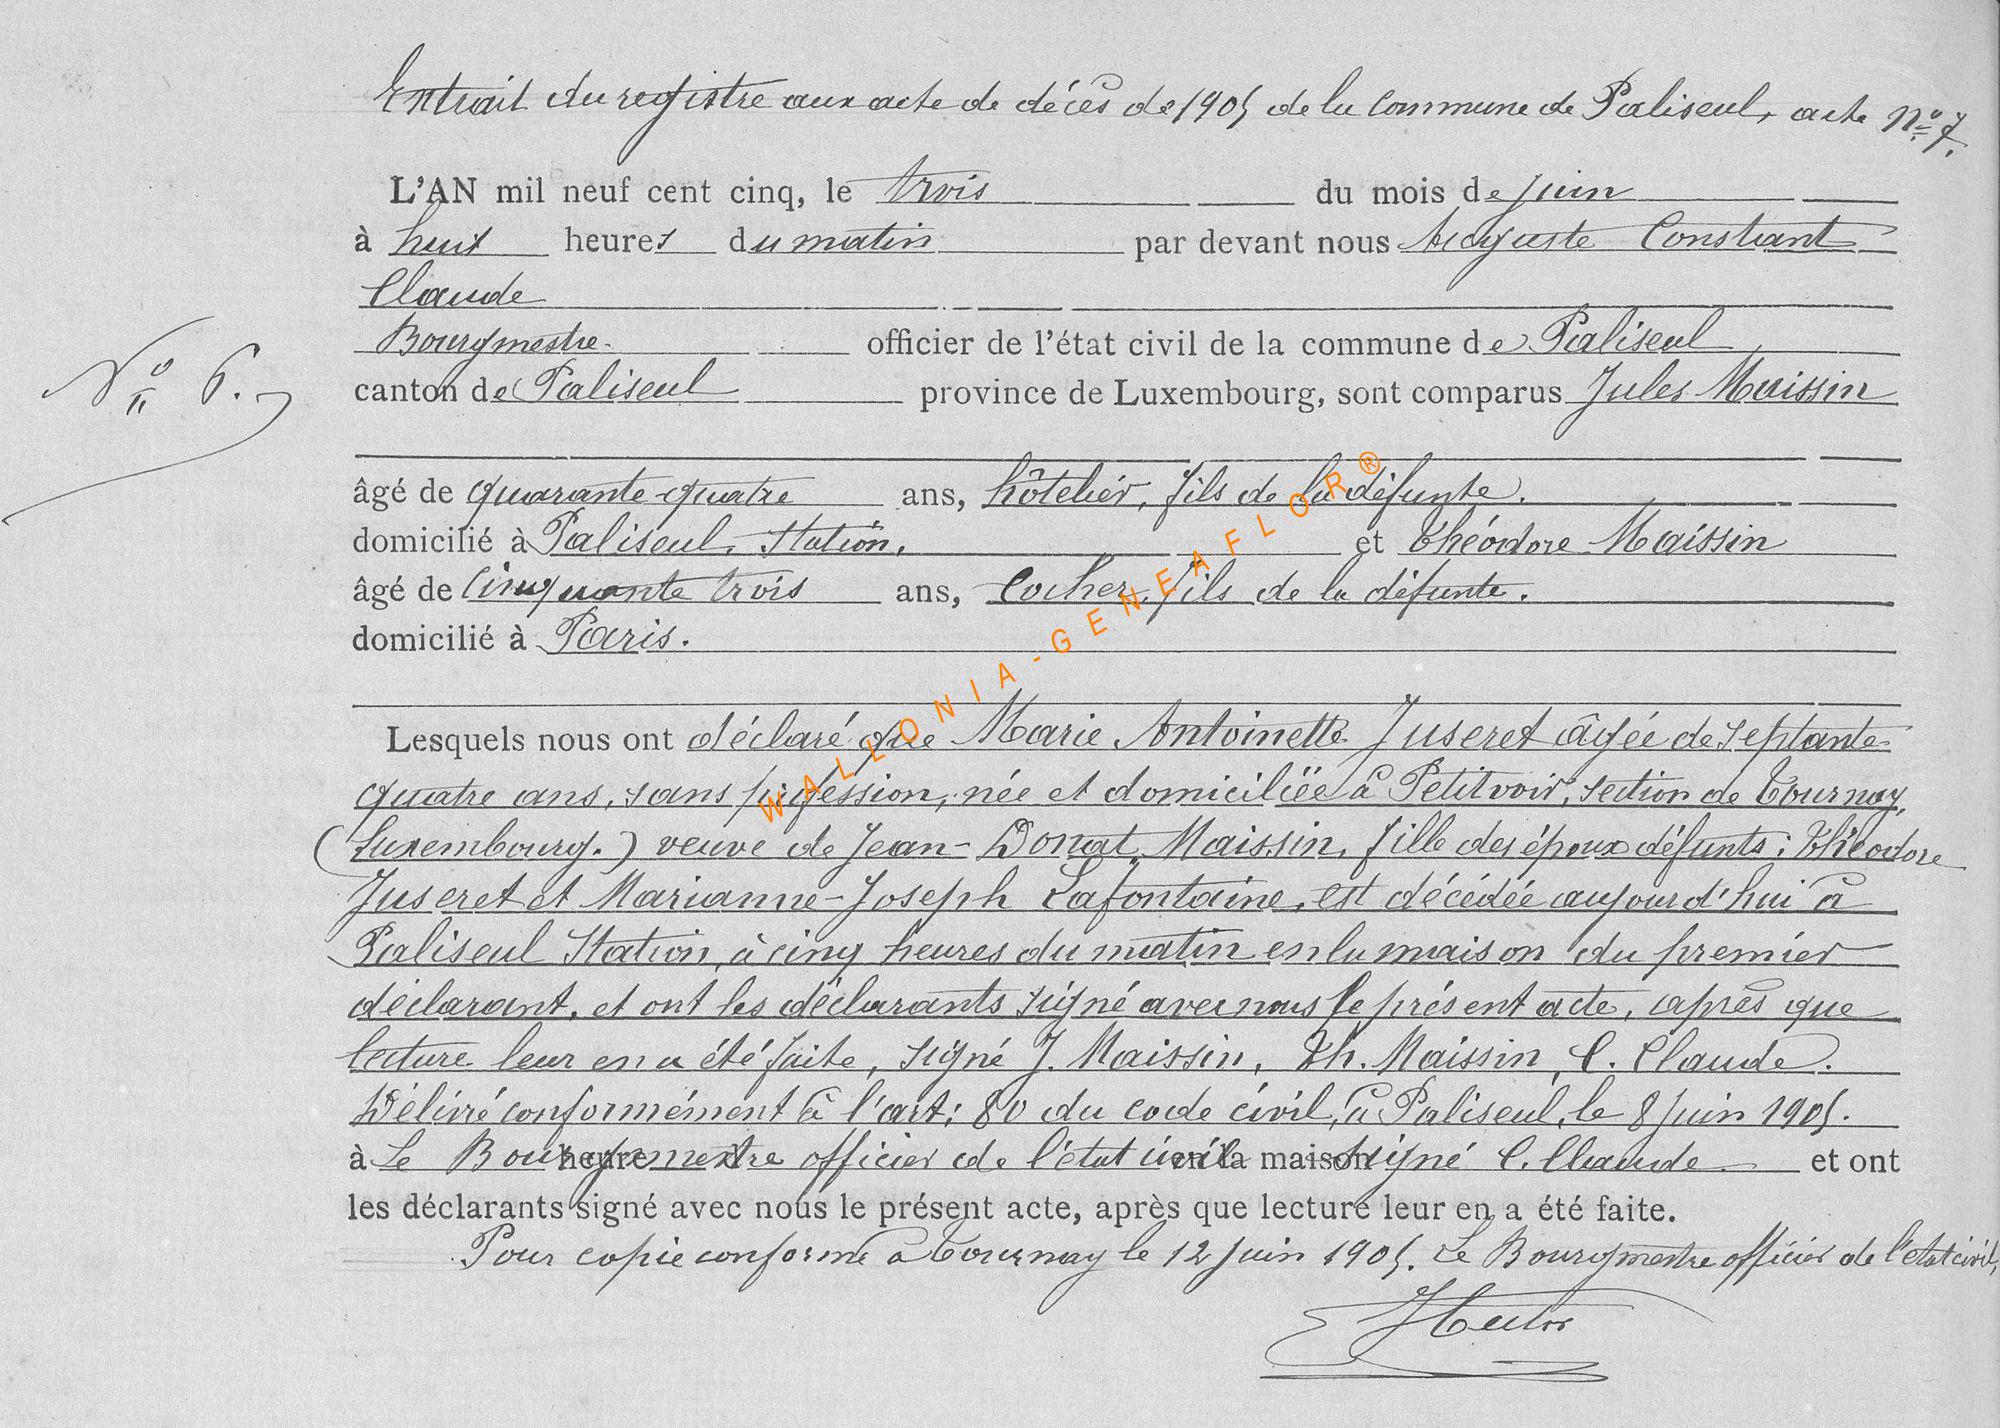 Extrait du registre aux acte de décès de 1905 de la Commune de Paliseul, acte N° 7.
L'AN mil neuf cent cinq, le trois du mois de juin
à huit heures du matin par devant nous Auguste Constant
Claude
Bourgmestre officier de l'état civil de la commune de Paliseul
N° 6.
canton de Paliseul province de Luxembourg, sont comparus Jules Maissin
âgé de quarante-quatre ans, hôtelier, fils de la défunte.
domicilié à Paliseul, Station, et Théodore Maissin
âgé de cinquante trois ans, Cocher, fils de la défunte.
domicilié à Paris.
Lesquels nous ont déclaré que Marie Antoinette Juseret âgée de septante-
quatre ans, sans profession, née et domiciliée à Petitvoir, section de Tournay,
(Luxembourg.) veuve de Jean-Donat Maissin, fille des époux défunts: Théodore
Juseret et Marianne-Joseph Lafontaine, est décédée aujourd'hui à
Paliseul Station, à cinq heures du matin en la maison du premier
déclarant, et ont les déclarants signé avec nous le présent acte, après que
lecture leur en a été faite, signé J. Maissin, Th. Maissin, C. Claude.
Délivré conformément à l'art: 80 du code civil, à Paliseul, le 8 juin 1905.
à heure en la maison et ont
Le Bourgmestre officier de l'état civil signé C. Claude
les déclarants signé avec nous le présent acte, après que lecture leur en a été faite.
Pour copie conforme à Tournay le 12 juin 1905. Le Bourgmestre officier de l'état civil,
WALLONIA-GENEAFLOR®